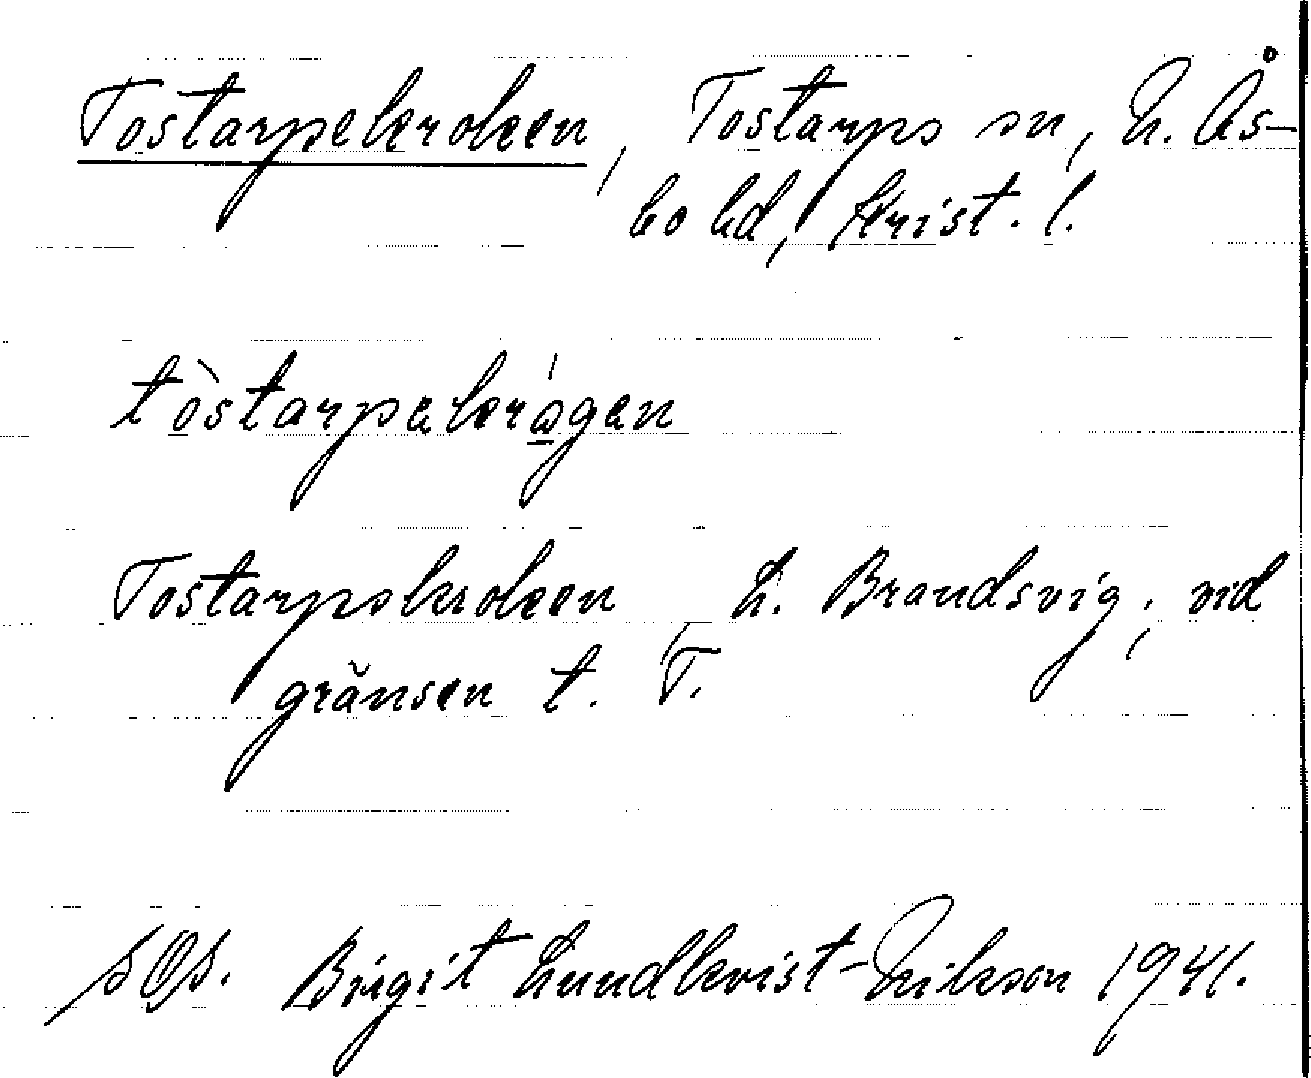 Tostarpekroken, Tostarps sn, N. Ås-
bo hd, Krist. l.
tòstarpekrågen
Tostarpskroken, L. Brandsvig, vid
gränsen t. T.
SOS. Birgit Lundkvist-Erikson 1941.